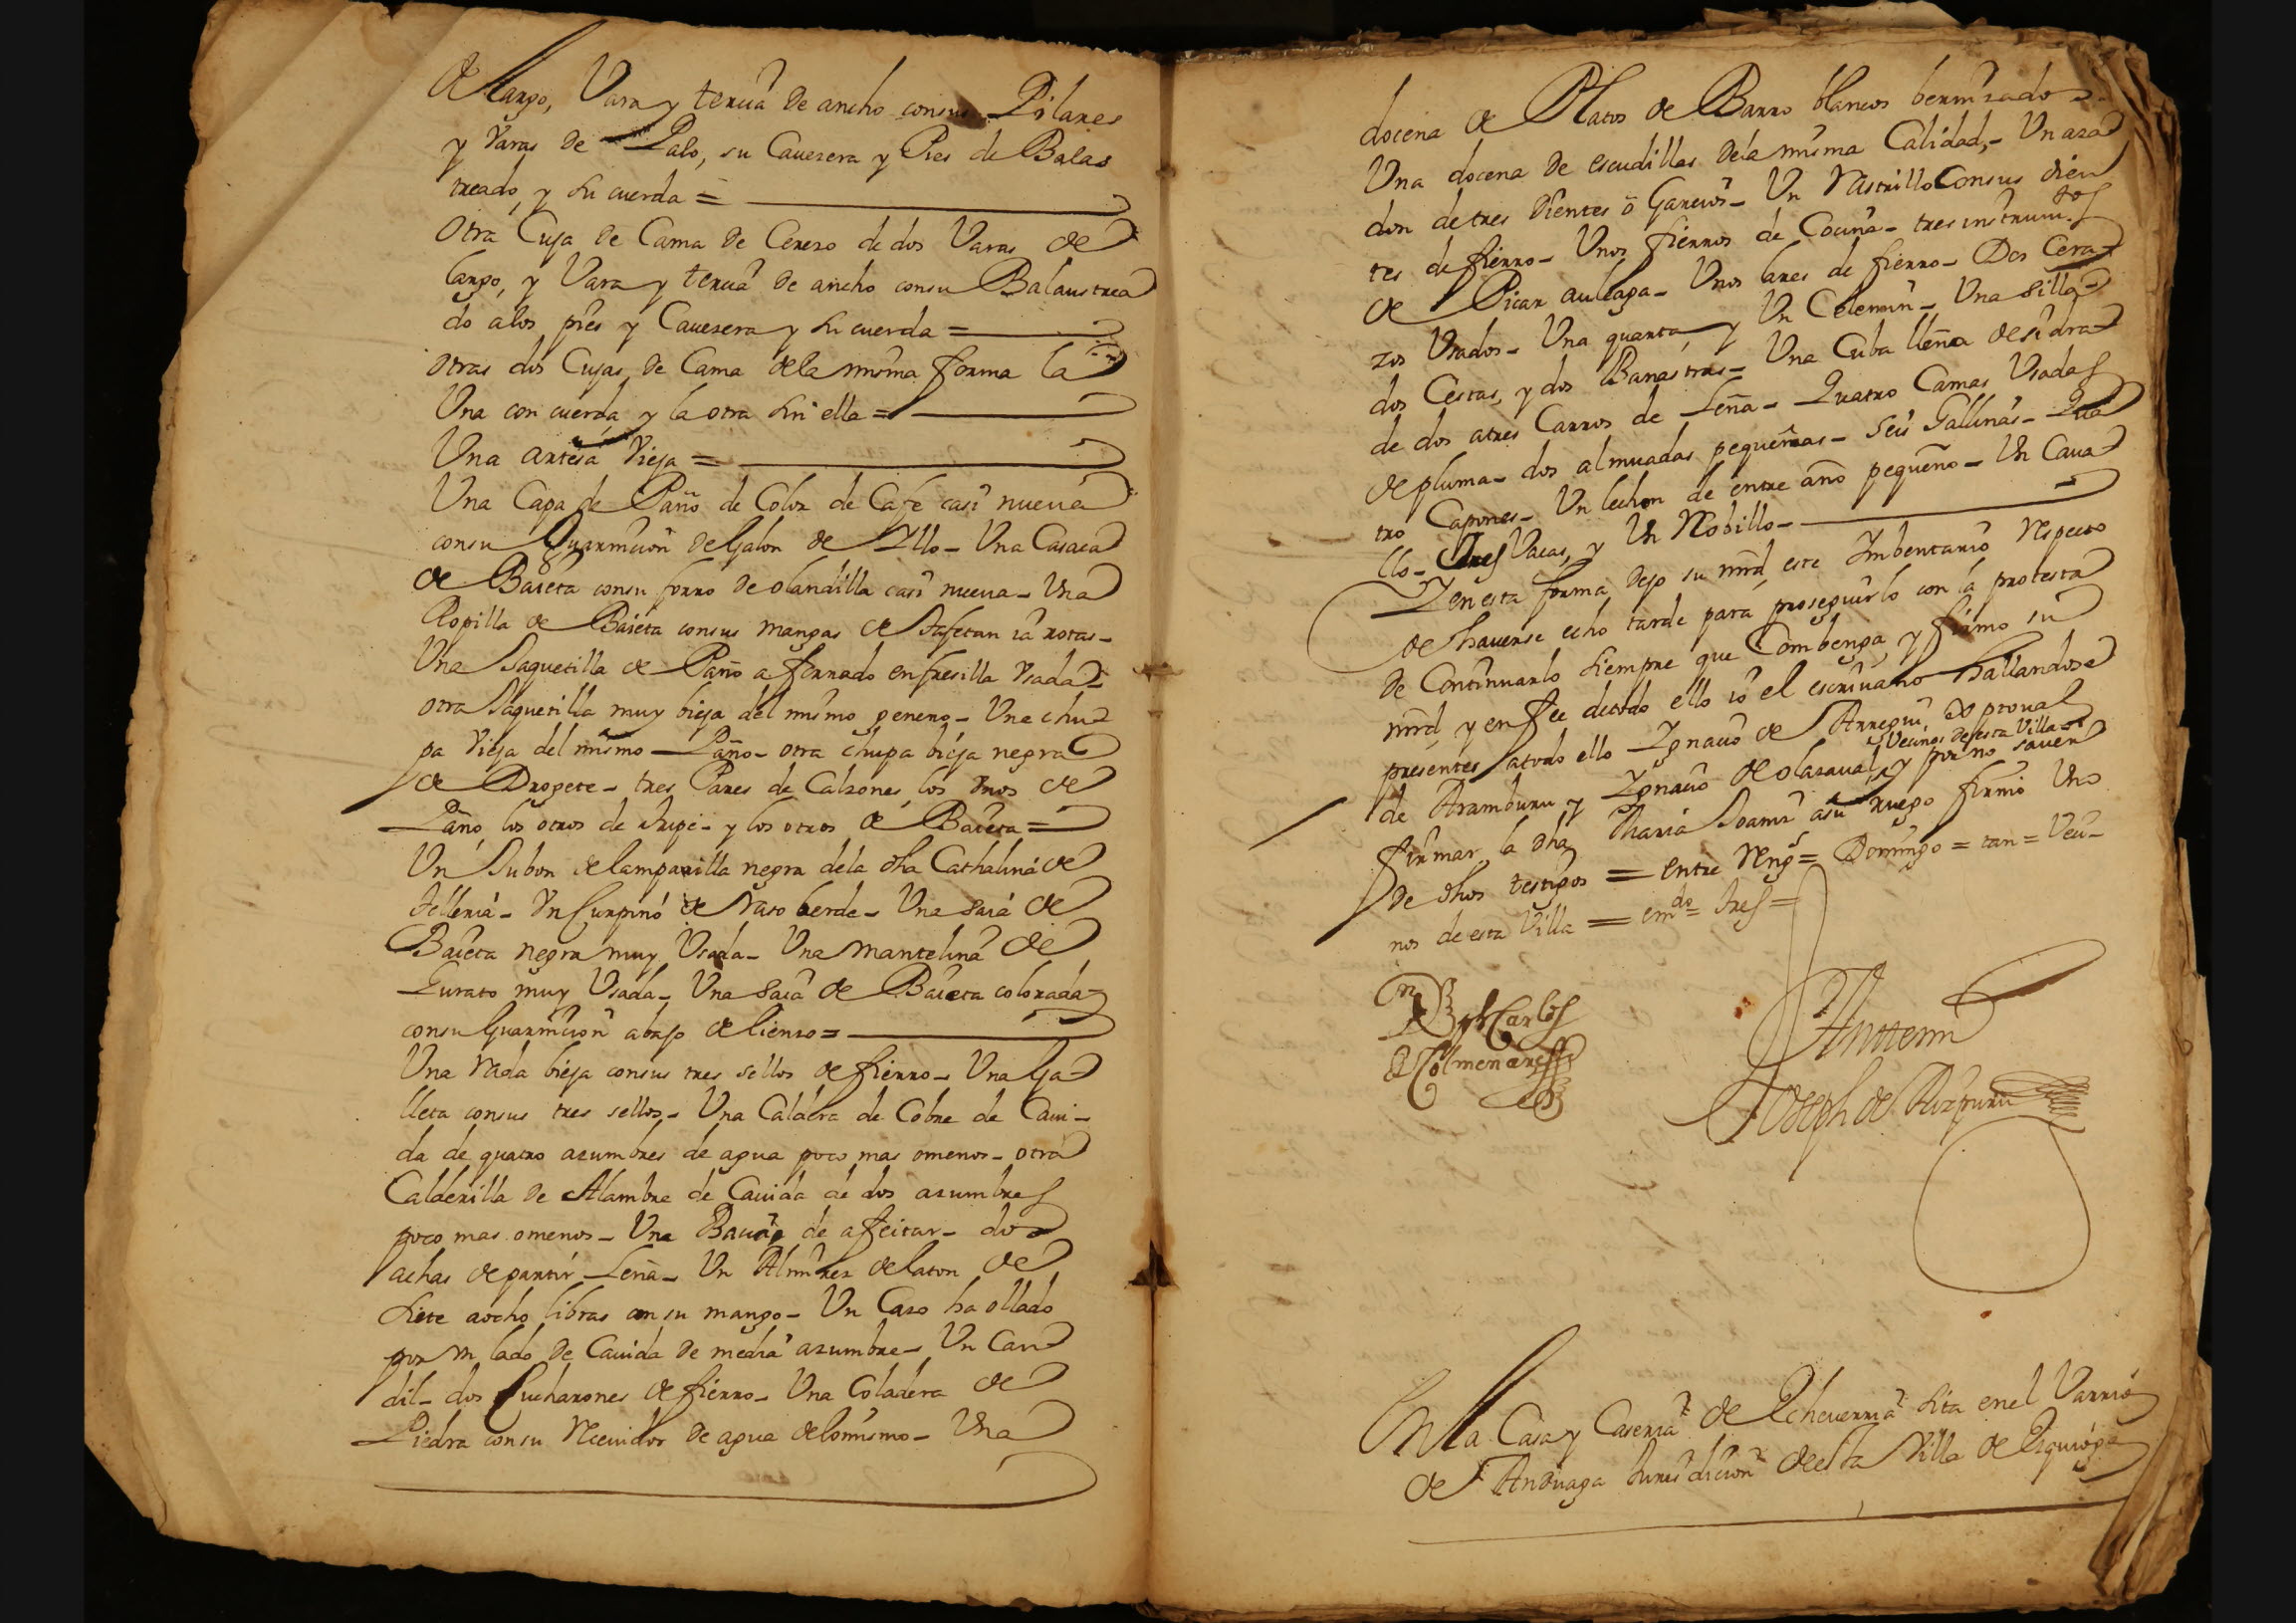 de largo, Vara y tercia de ancho consus Pilares
y varas de Palo, su Cavezera y Pies de Balas
treado, y su cuerda =
Otra Cuja de Cama de Cerezo de dos Varas de
largo, y Vara y tercia de ancho consu Balaustrea
do alos pies y Cavezera y su cuerda =
otras dos Cujas de Cama dela misma forma la
Una con cuerda, y la otra sin ella =
Una artesa Vieja =
Una Capa de Paño de Color de Cafe casi nueva
consu Guarnicion de Galon de Illo - Una Casaca
de Baieta consu forro de olandilla casi nueva - Una
Ropilla de Baieta consus mangas de tafetan ia rotas -
Una Jaquetilla de Paño aforrado en fresilla Usada -
otra Jaquetilla muy bieja del mismo genero - Una chu
pa Vieja del mismo Paño - otra chupa bieja negra
de Drogete - tres Pares de Calzones los Unos de
Paño, los otros de tripe - y los otros de Baieta =
Un Jubon de lamparilla negra dela dha Cathalina de
telleria - Un Curpino de raso berde - Una saia de
Baieta negra muy Usada - Una mantelina de
Curato muy Usada - Una saia de Baieta colorada
consu Guarnicion abajo de lienzo =
Una rada bieja consus tres sellos de fierro - Una Ga
lleta consus tres sellos - Una Caldera de Cobre de Cavi -
da de quatro azumbres de agua poco mas omenos - otra
Calderilla de Alambre de Cavida de dos azumbres
poco mas omenos - Una Bacia de afeitar - dos
achas de partir Leña - Un Almirez de laton de
siete aocho libras con su mango - Un Cazo ha ollado
por un lado de Cavida de media azumbre - Un Can
dil - dos Cucharones de fierro - Una Coladera de
Piedra consu Recividor de agua delomismo - Una
docena de Platos de Barro blancos bernizados -
Una docena de escudillas dela misma Calidad, - Un aza
don de tres Dientes ó Garcios - Un rastrillo Consus dien
tes de fierro - Unos fierros de Cocina - tres instrumtos
de Picar auleaga - Unos lares de fierro - Dos Ceda
zos Usados - Una quarta, y Un Celemin - Una silla -
dos Cestas, y dos Banastras - Una Cuba llena de sidra
de dos atres Carros de Leña - Quatro Camas Usadas
de pluma - dos almuadas pequeñas - seis Gallinas - Qua
tro Capones - Un lechon de entre año pequeño - Un Cava
llo - tres Vacas, y Un Nobillo -
Y en esta forma dejo su mrd este Imbentario respecto
de haverse echo tarde para proseguirlo con la protesta
de Continuarlo siempre que Combenga, y firmo su
mrd, y en fee detodo ello io el escrivano hallandose
presentes atodo ello Ygnacio de Arregui, Domingo
de Aramburu y Ygnacio de olazaval, Vecinos de esta Villa y por no saver
firmar la dha Maria Joani asu ruego firmó Uno
de dhos testigos = entre rengs = Domingo = tan = Veci -
nos de esta Villa = emdo = tres =
Carlos
de Colmenares
Antemi
Joseph de Aizpuru
En la Casa y Caseria de Echeverria sita en el Varrio
de Anduaga Jurisdicion de esta Villa de Ezquioga